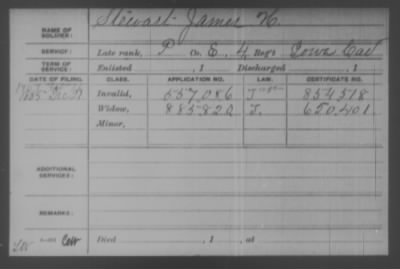 NAME OF SOLDIER: Stewart James H.
SERVICE: Late rank, P Co. E, 4 Reg't Iowa Cav
TERM OF SERVICE: Enlisted , 1 Discharged , 1
DATE OF FILING. CLASS. APPLICATION NO. LAW. CERTIFICATE NO.
Invalid, 557,086 854,518
Widow, 885,820 650,401
Minor,
ADDITIONAL SERVICES:
REMARKS:
Died , 1 , at